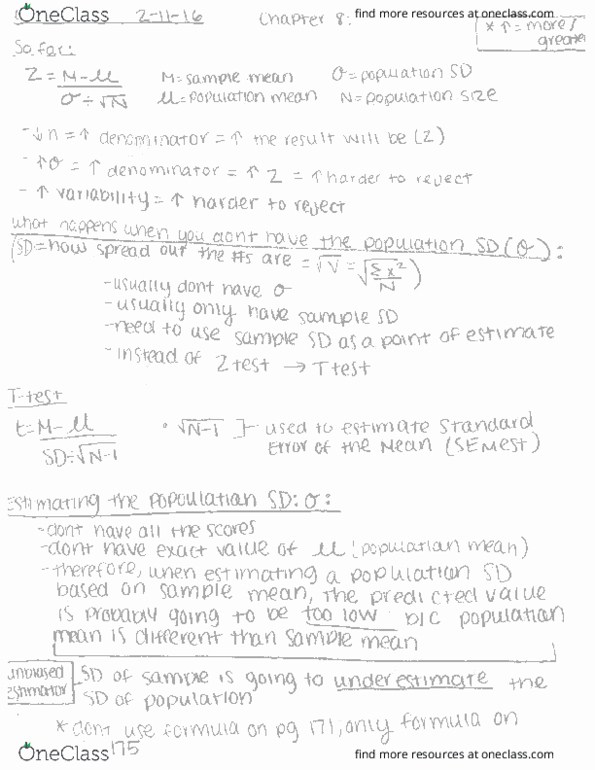 OneClass 2-11-16 Chapter 8: find more resources at oneclass.com
* ↑ = more/
greater
So far:
Z = M - μ M = sample mean σ = population SD
σ ÷ √N μ = population mean N = population size
- ↓ n = ↑ denominator = ↑ the result will be (Z)
- ↑ σ = ↑ denominator = ↑ Z = ↑ harder to reject
- ↑ variability = ↑ harder to reject
what happens when you dont have the population SD (σ):
(SD = how spread out the #s are = √V = √Σx²/N)
- usually dont have σ
- usually only have sample SD
- need to use sample SD as a point of estimate
- instead of Z test → T test
T-test
t = M - μ • √N-1 ]- used to estimate standard
SD ÷ √N-1 Error of the Mean (SEMest)
Estimating the popoulation SD: σ:
- dont have all the scores
- dont have exact value of μ (population mean)
- therefore, when estimating a population SD
based on sample mean, the predicted value
is probably going to be too low b/c population
mean is different than sample mean
unbiased SD of sample is going to underestimate the
estimator SD of population
* dont use formula on pg 171, only formula on
175
OneClass find more resources at oneclass.com